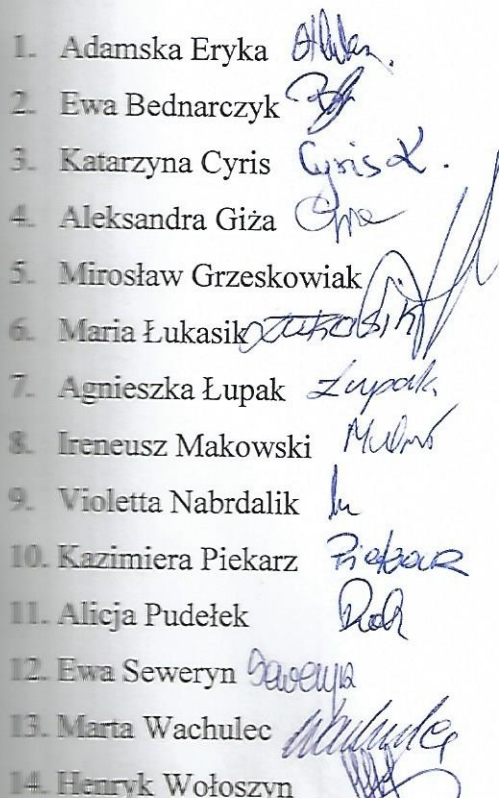 1. Adamska Eryka
2. Ewa Bednarczyk
3. Katarzyna Cyris Cyris K.
4. Aleksandra Giża
5. Mirosław Grzeskowiak
6. Maria Łukasik Łukasik
7. Agnieszka Łupak Łupak
8. Ireneusz Makowski
9. Violetta Nabrdalik
10. Kazimiera Piekarz Piekarz
11. Alicja Pudełek
12. Ewa Seweryn Seweryn
13. Marta Wachulec Wachulec
14. Henryk Wołoszyn